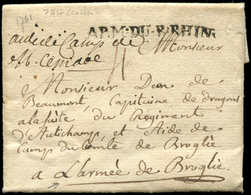 ARM.DU.B.RHIN
Monsieur
Monsieur Don de
Beaumont Capitaine de dragons
a la suite du Regiment
d'Autichamp et Aide de
Camp du Comte de Broglie
a L'armée de Broglie